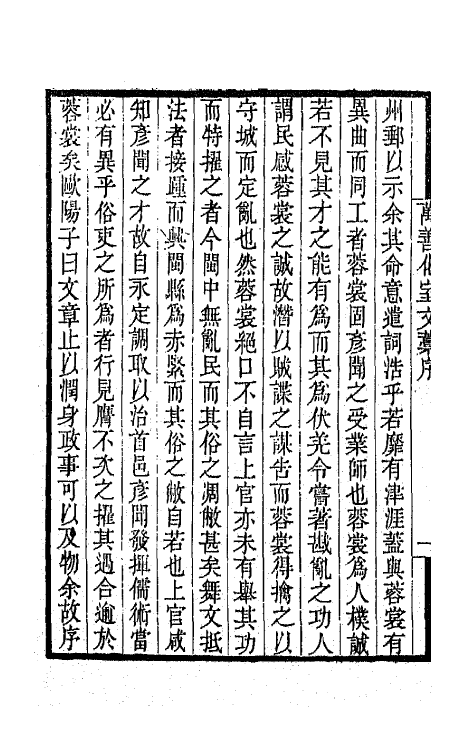 萬善花室文藁序
一
州郵以示余其命意遣詞浩乎若靡有津涯蓋與蓉裳有
異曲而同工者蓉裳固彥聞之受業師也蓉裳爲人樸誠
若不見其才之能有爲而其爲伏羌令嘗著戡亂之功人
謂民感蓉裳之誠故潛以賊諜之謀吿而蓉裳得擒之以
守城而定亂也然蓉裳絕口不自言上官亦未有舉其功
而特擢之者今閩中無亂民而其俗之凋敝甚矣舞文抵
法者接踵而興閩縣爲赤緊而其俗之敝自若也上官咸
知彥聞之才故自永定調取以治首邑彥聞發揮儒術當
必有異乎俗吏之所爲者行見膺不次之擢其遇合逾於
蓉裳矣歐陽子曰文章止以潤身政事可以及物余故序